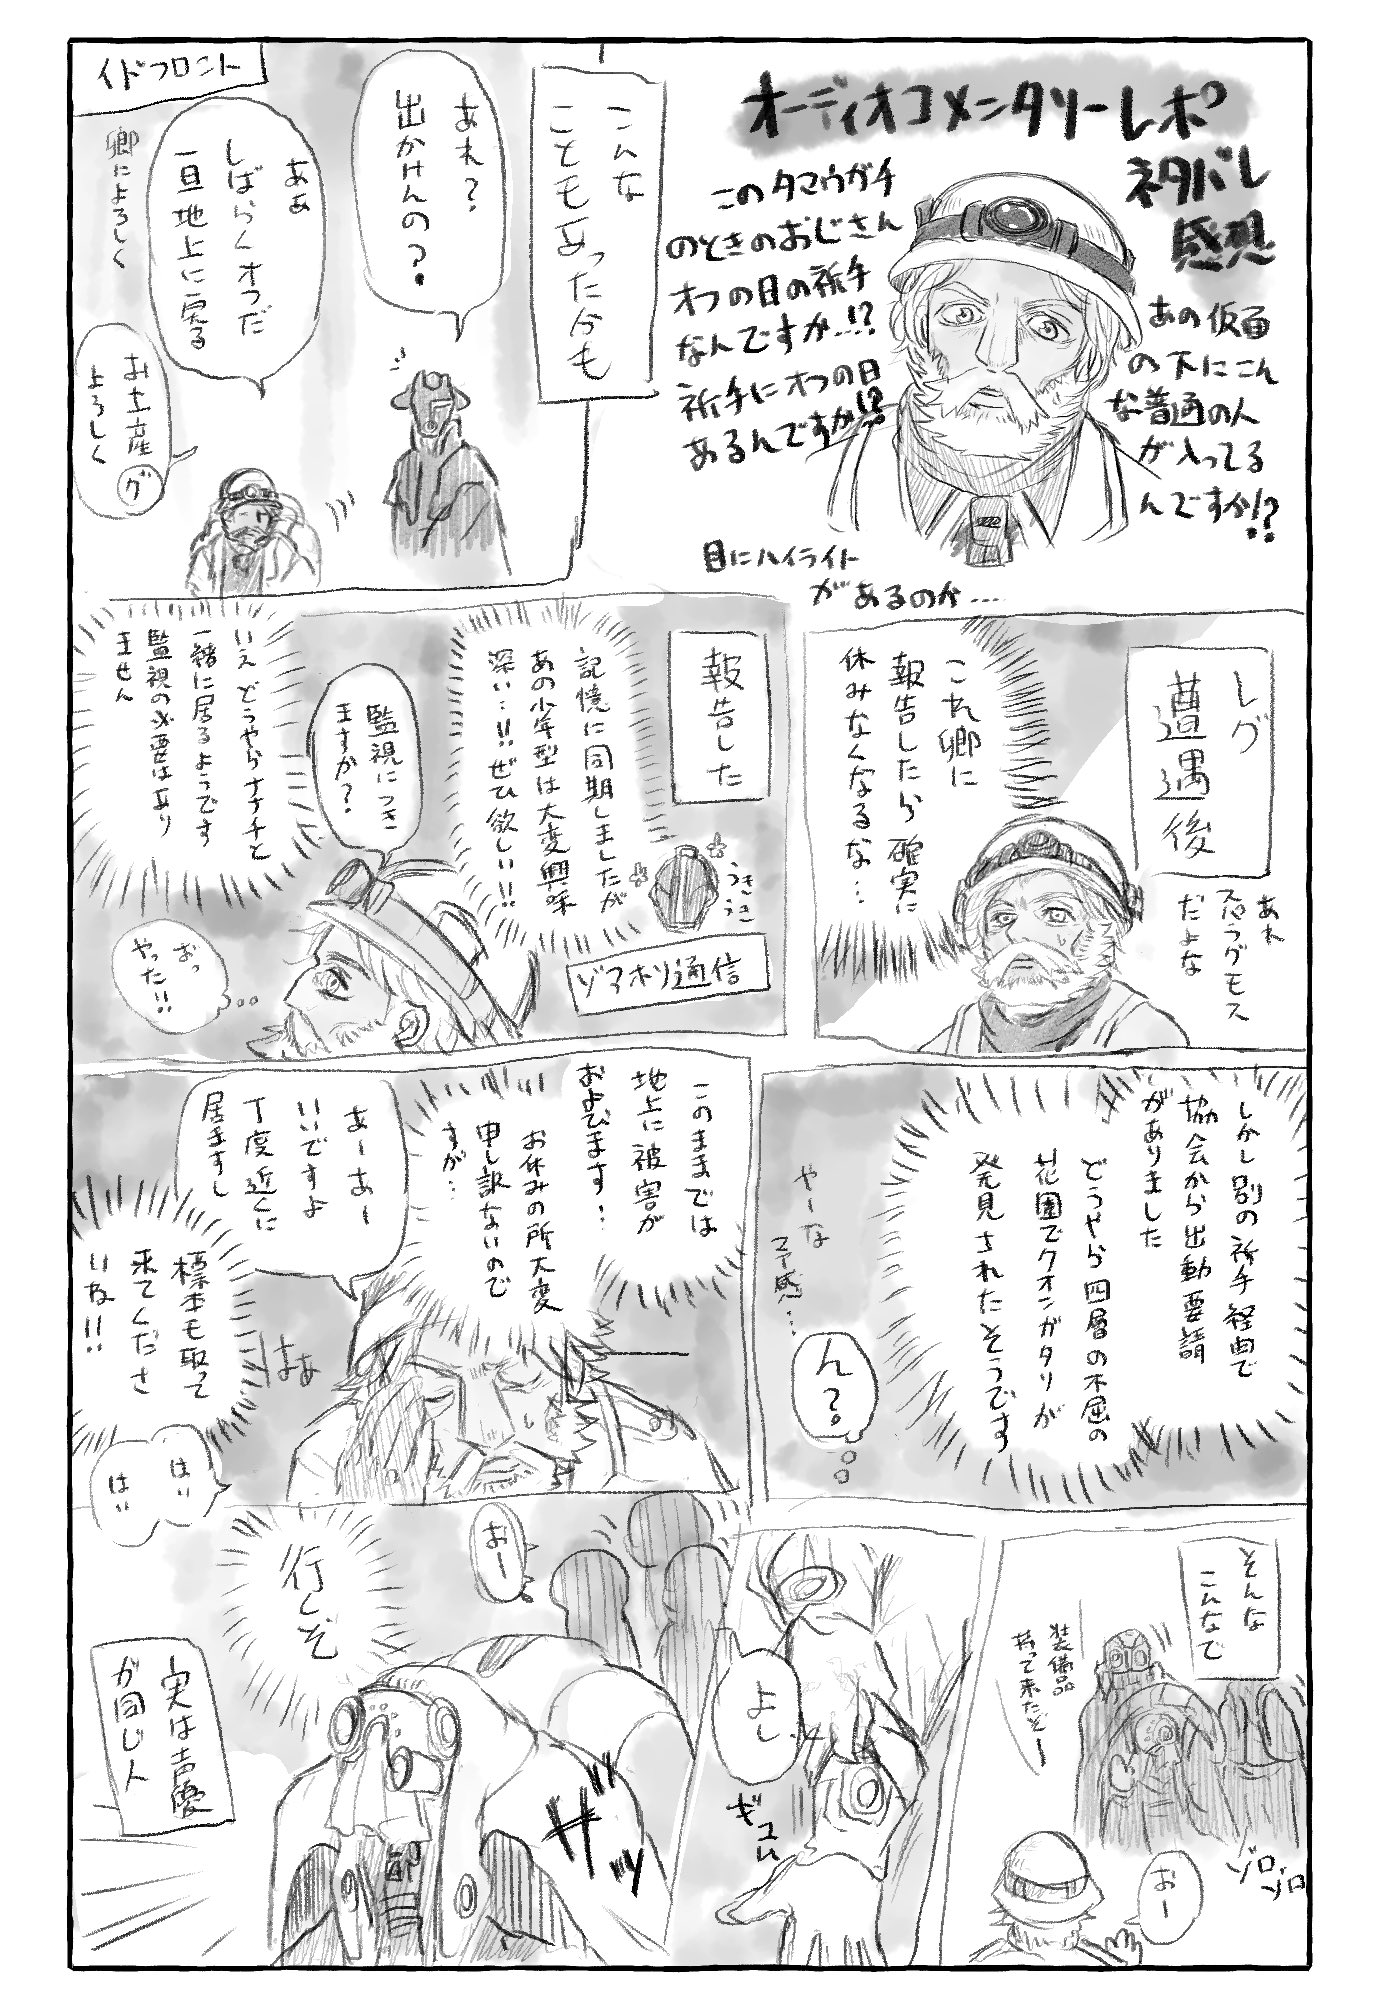 オーディオコメンタリーレポ
ネタバレ
感想
あの仮面
の下にこん
な普通の人
が入ってる
んですか!?
このタマウガチ
のときのおじさん
オフの日の祈手
なんですか…!?
祈手にオフの日
あるんですか!?
目にハイライト
があるのか…
こんな
ことも
あったかも
あれ?
出かけんの?
イドフロント
ああ
しばらくオフだ
一旦地上に戻る
卿によろしく
お土産
よろしく
グ
レグ
遭遇後
あれ
だよな
これ卿に
報告したら確実に
休みなくなるな…
報告した
記憶に同期しましたが
あの少年型は大変興味
深い…!!ぜひ欲しい!!
うき
うき
ゾアホリ通信
監視につき
ますか?
いえどうやらナナチと
一緒に居るようです
監視の必要はあり
ません
おっ
やった!!
しかし別の祈手経由で
協会から出動要請
がありました
どうやら四層の不屈の
花園でクオンガタリが
発見されたそうです
やーな
予感…
ん?
このままでは
地上に被害が
およびます…
お休みの所大変
申し訳ないので
すが…
あーあー
いいですよ
丁度近くに
居ますし
標本も取って
来てくださ
いね!!
はあ
はい
はい
そんな
こんなで
装備品
持って来たぞー
ゾロ
ゾロ
おー
よし
ギュム
おー
行くぞ
ザッ
実は声優
が同じ人